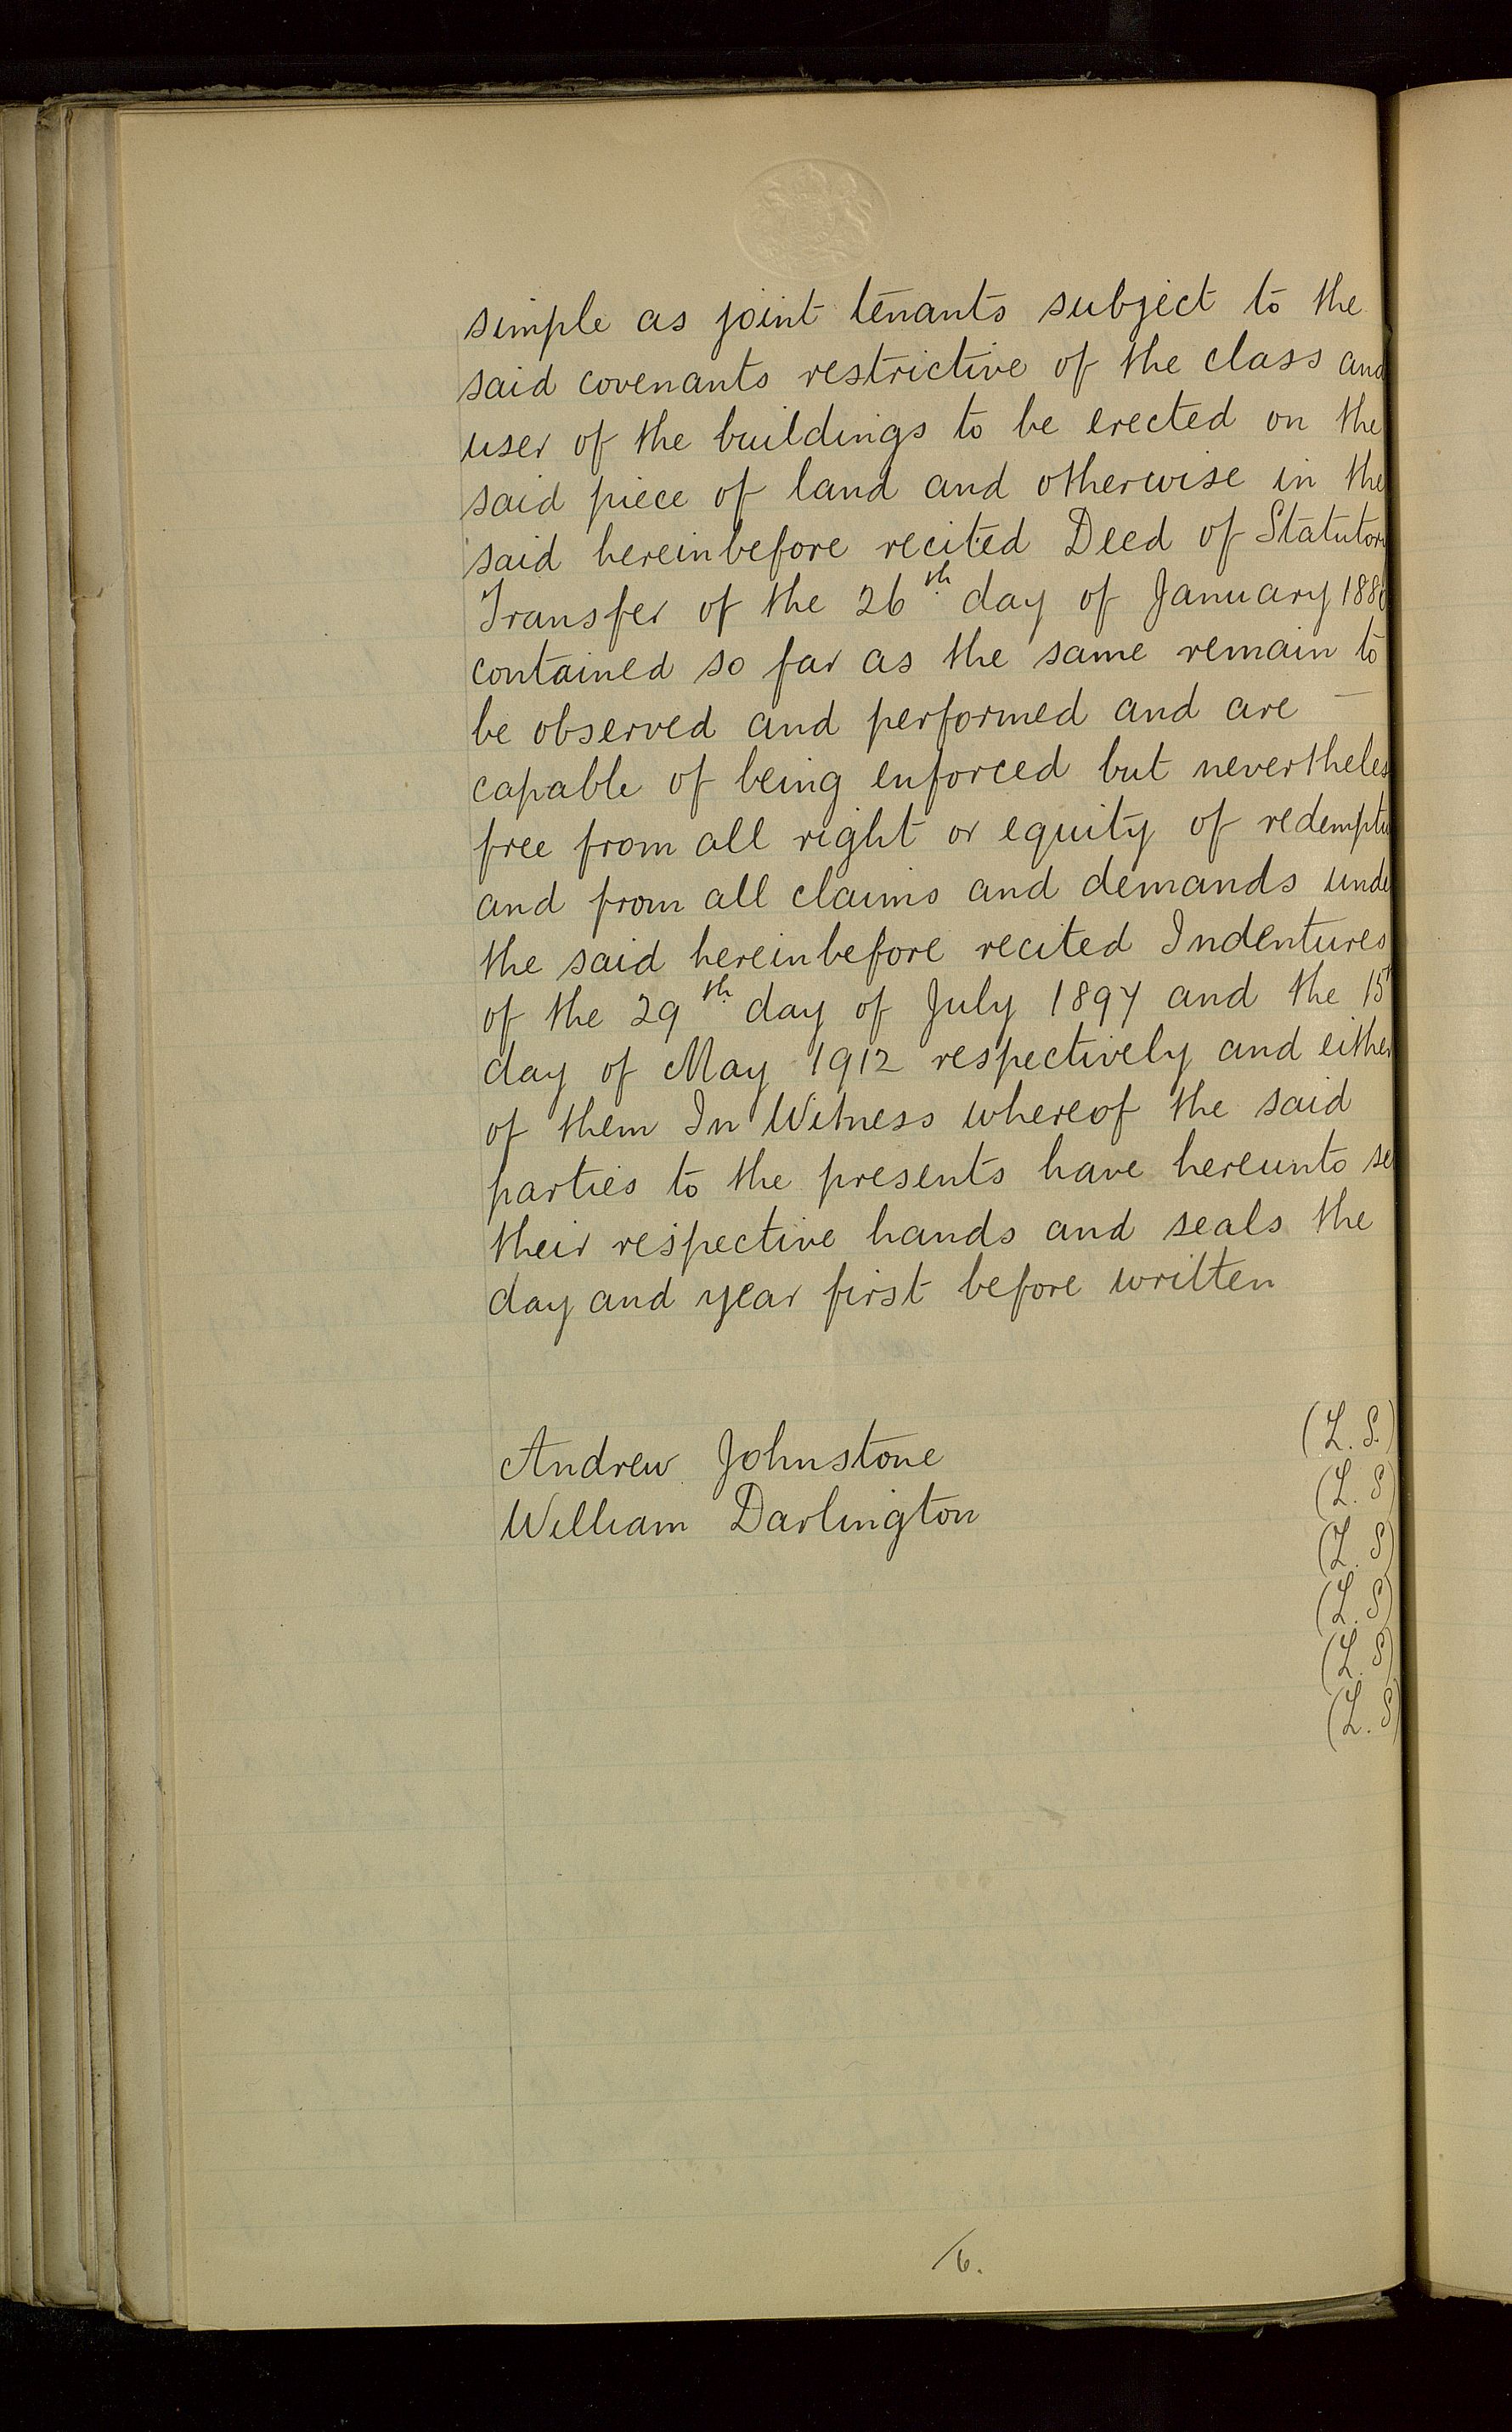 simple as joint tenants subject to the
said covenants restrictive of the class and
user of the buildings to be erected on the
said piece of land and otherwise in the
said hereinbefore recited Deed of Statutor
Transfer of the 26th day of January 188
contained so far as the same remain to
be observed and performed and are —
capable of being enforced but neverthele
free from all right or equity of redempt
and from all claims and demands unde
the said hereinbefore recited Indentures
of the 29th day of July 1897 and the 15t
day of May 1912 respectively and either
of them In Witness whereof the said
parties to the presents have hereunto se
their respective hands and seals the
day and year first before written
Andrew Johnstone (L.S.)
William Darlington (L.S)
(L.S)
(L.S)
(L.S)
(L.S)
/6.